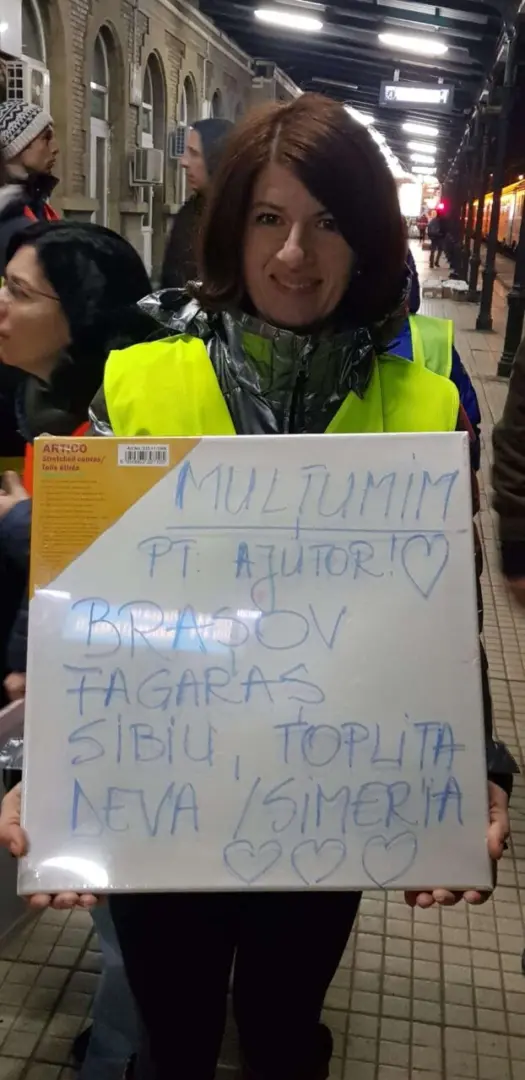 ARTICO
Stretched canvas/
Toile étirée
MULȚUMIM
PT. AJUTOR!
BRAȘOV
FAGARAȘ
SIBIU, TOPLIȚA
DEVA /SIMERIA